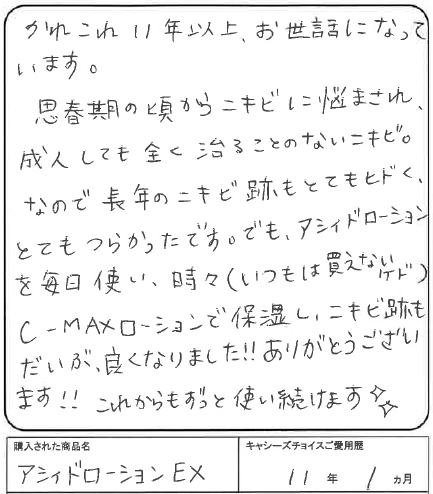 かれこれ11年以上、お世話になって
います。
思春期の頃からニキビに悩まされ、
成人しても全く治ることのないニキビ。
なので長年のニキビ跡もとてもヒドく、
とてもつらかったです。でも、アシィドローション
を毎日使い、時々(いつもは買えないケド)
C-MAXローションで保湿し、ニキビ跡も
だいぶ、良くなりました!!ありがとうござい
ます!!これからもずっと使い続けます☆☆
購入された商品名
アシィドローションEX
キャシーズチョイスご愛用歴
11年1ヵ月